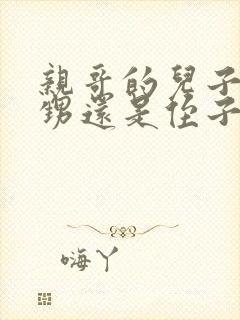 親哥的兒子
甥還是侄子
嗨丫